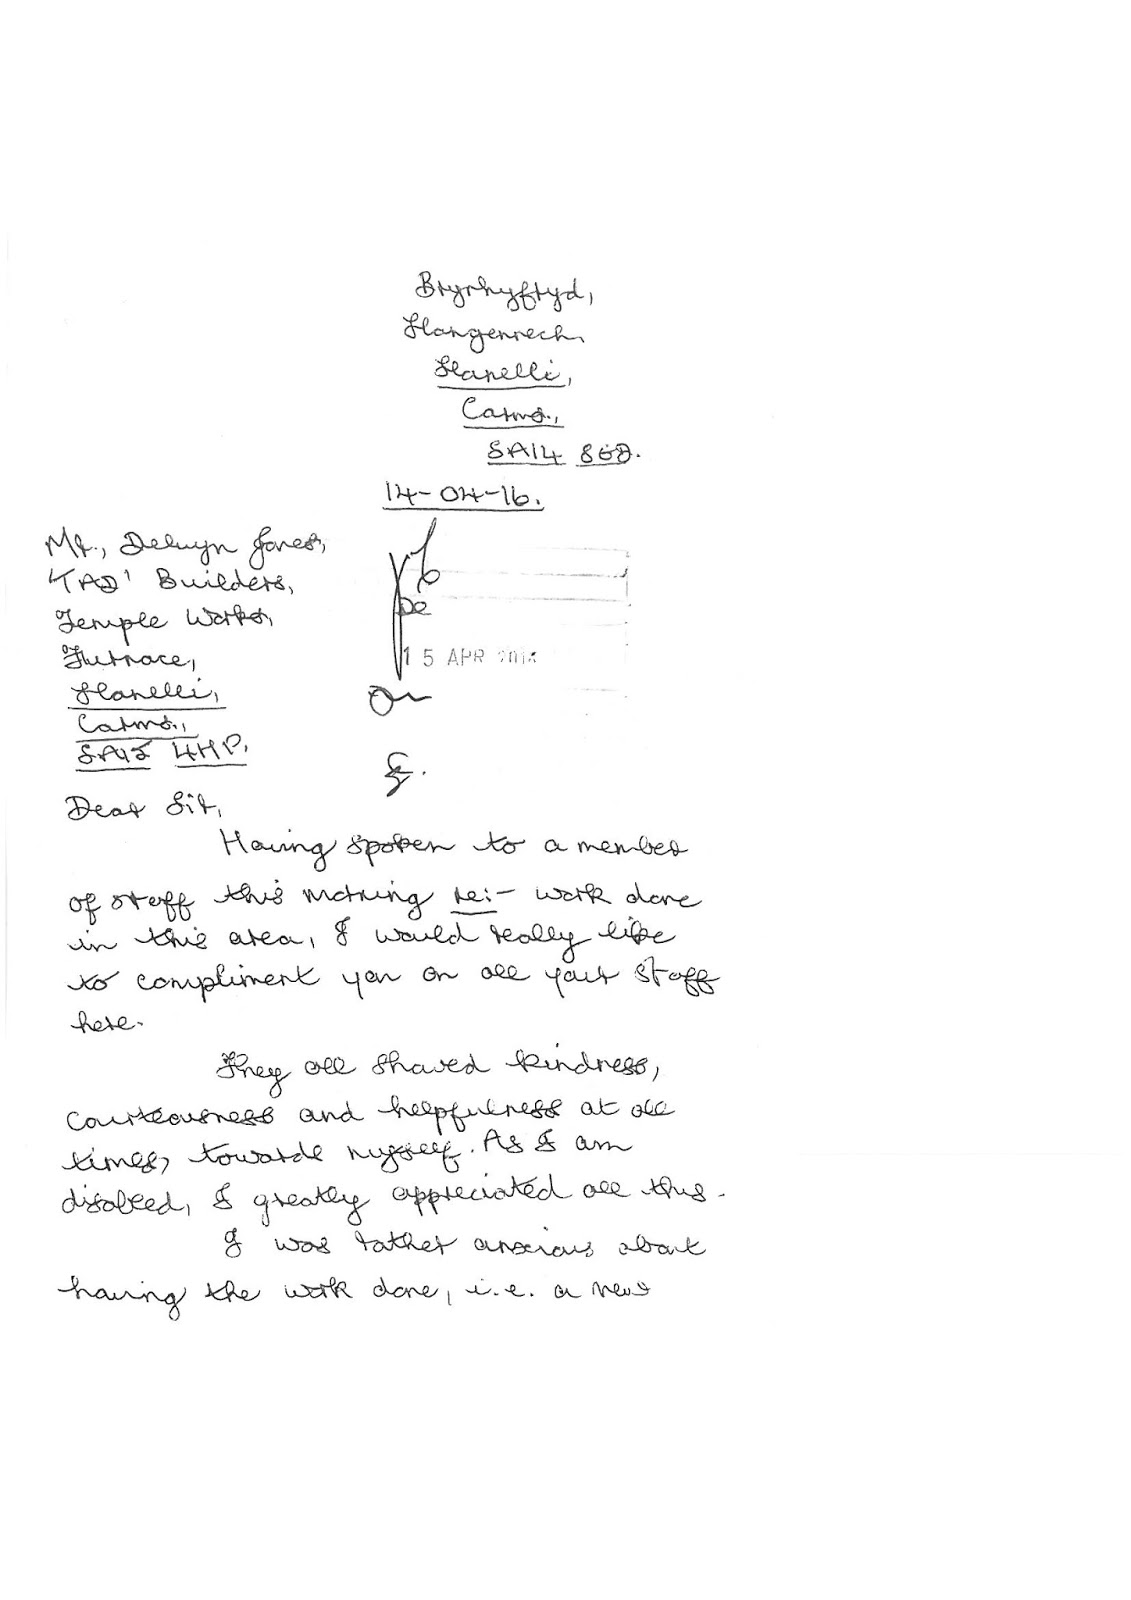 Brynhyfryd,
Llangennech,
Llanelli,
Carms.,
SA14
14-04-16.
Mr., Delwyn Jones,
'TAD' Builders,
Temple Works,
Furnace,
Llanelli,
Carms.,
SA15 4HP.
15 APR 2016
Dear Sir,
Having spoken to a member
of staff this morning re:- work done
in this area, I would really like
to compliment you on all your staff
here.
They all showed kindness,
courteousness and helpfulness at all
times, towards myself. As I am
disabled, I greatly appreciated all this.
I was rather anxious about
having the work done, i.e. a new